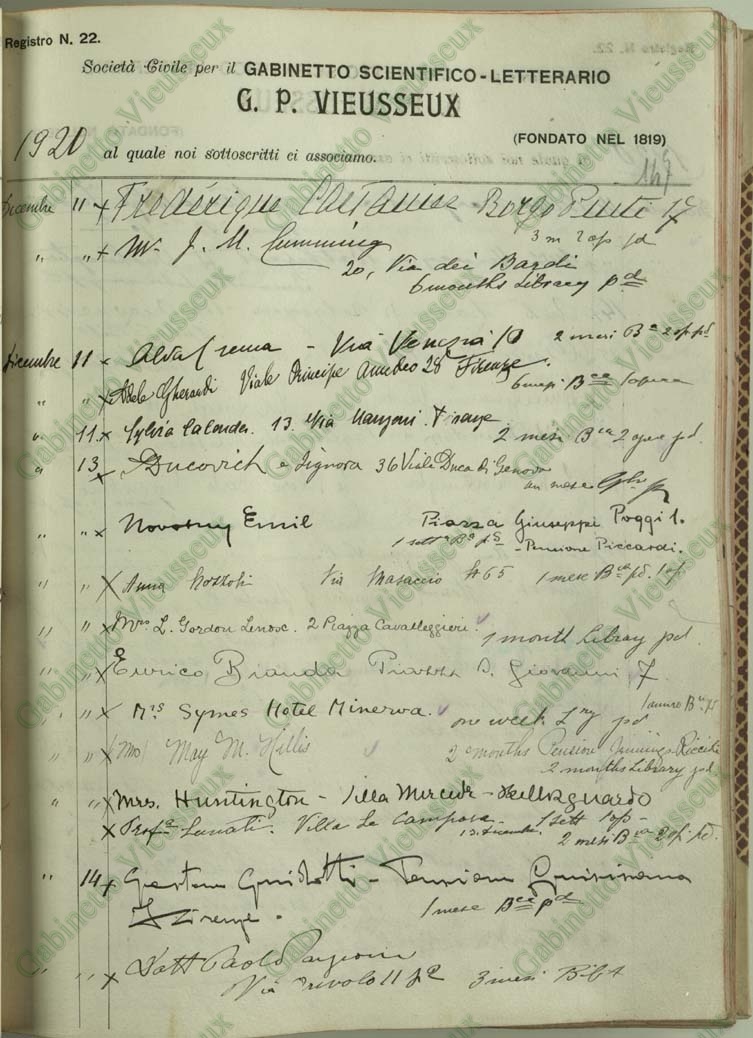 Registro N. 22.
Società Civile per il GABINETTO SCIENTIFICO-LETTERARIO
G. P. VIEUSSEUX
(FONDATO NEL 1819)
1920
al quale noi sottoscritti ci associamo.
Dicembre 11 x Frédérique Borgo Pinti
3 m 2 op pd
" " x Mr. J. M. Cumming
20, Via dei Bardi
6 months Library pd
Dicembre 11 x Alda Crema - Via Venezia 10 2 mesi Bca 2 op pd
" " x Adele Gherardi Viale Principe Amedeo 28 Firenze.
6 mesi Bca 1 opera
" 11 x Sylvia Calonder. 13. Via Manzoni. Firenze
2 mesi Bca 2 opere pd.
" 13 x Ducovich e Signora 36 Viale Duca di Genova
un mese
" " x Novotny Emil Piazza Giuseppe Poggi 1.
1 sett Ba pd - Pensione Piccardi.
" " x Anna Via Masaccio 65 1 mese Bca pd. 1 op
" " x Mrs L. Gordon Lenox. 2 Piazza Cavalleggieri.
1 month Library pd.
" " x Enrico Bianda Piazza S. Giovanni 7.
1 anno Bca pd
" " x Mrs Symes Hotel Minerva. one week pd
" " x May M. Hillis 2 months Pension Jennings Riccioli
2 months Library pd
" " x Mrs. Huntington - Villa Mercede - Bellosguardo
1 sett 1 op -
x Profa Lunati. Villa La Campora. 13. Dicembre. 2 mesi Bca 2 op. pd.
" 14 x Gaetano Guidotti - Pensione Quisisana
Firenze.
1 mese Bca pd
" " x Dott Paolo
Via 11 3 mesi